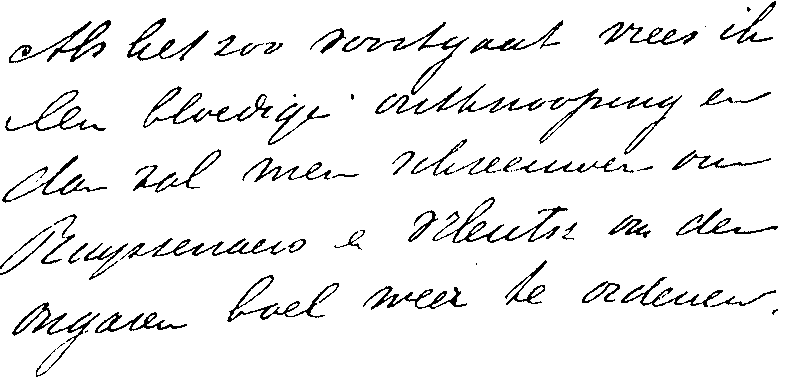 Als het zoo voortgaat vrees ik
een bloedige ontknooping en
dan zal men schreeuwen om
Ruyssenaers en Heutsz om den
ongaren boel weer te ordenen.